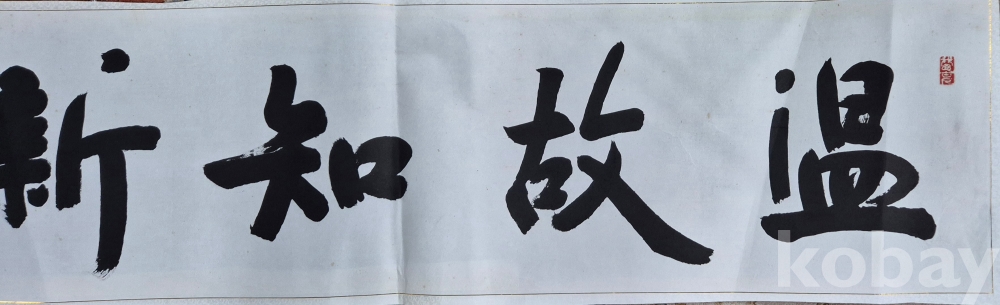 溫故知新
kobay